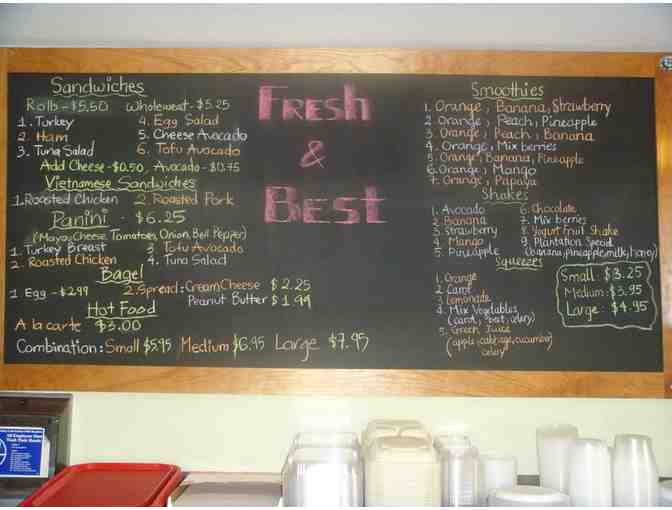 Fresh
&
Best
Sandwiches
Rolls - $5.50 Wholewheat - $5.25
1. Turkey 4. Egg Salad
2. Ham 5. Cheese Avocado
3. Tuna Salad 6. Tofu Avocado
Add Cheese - $0.50, Avocado - $0.75
Vietnamese Sandwiches
1. Roasted Chicken 2. Roasted Pork
Panini - $6.25
(Mayo, Cheese, Tomatoes, Onion, Bell Pepper)
1. Turkey Breast 3. Tofu Avocado
2. Roasted Chicken 4. Tuna Salad
Bagel
1 Egg - $2.99 2. Spread: Cream Cheese $2.25
Peanut Butter $1.99
Hot Food
A la carte $3.00
Combination: Small $5.95 Medium $6.95 Large $7.95
Smoothies
1. Orange, Banana, Strawberry
2. Orange, Peach, Pineapple
3. Orange, Peach, Banana
4. Orange, Mix berries
5. Orange, Banana, Pineapple
6. Orange, Mango
7. Orange, Papaya
Shakes
1. Avocado 6. Chocolate
2. Banana 7. Mix berries
3. Strawberry 8. Yogurt Fruit Shake
4. Mango 9. Plantation Special
5. Pineapple (banana, pineapple, milk, honey)
Squeezes
1. Orange
2. Carrot
3. Lemonade
4. Mix Vegetables
(carrot, beet, celery)
5. Green Juice
(apple, cabbage, cucumber,
celery)
Small: $3.25
Medium: $3.95
Large: $4.95